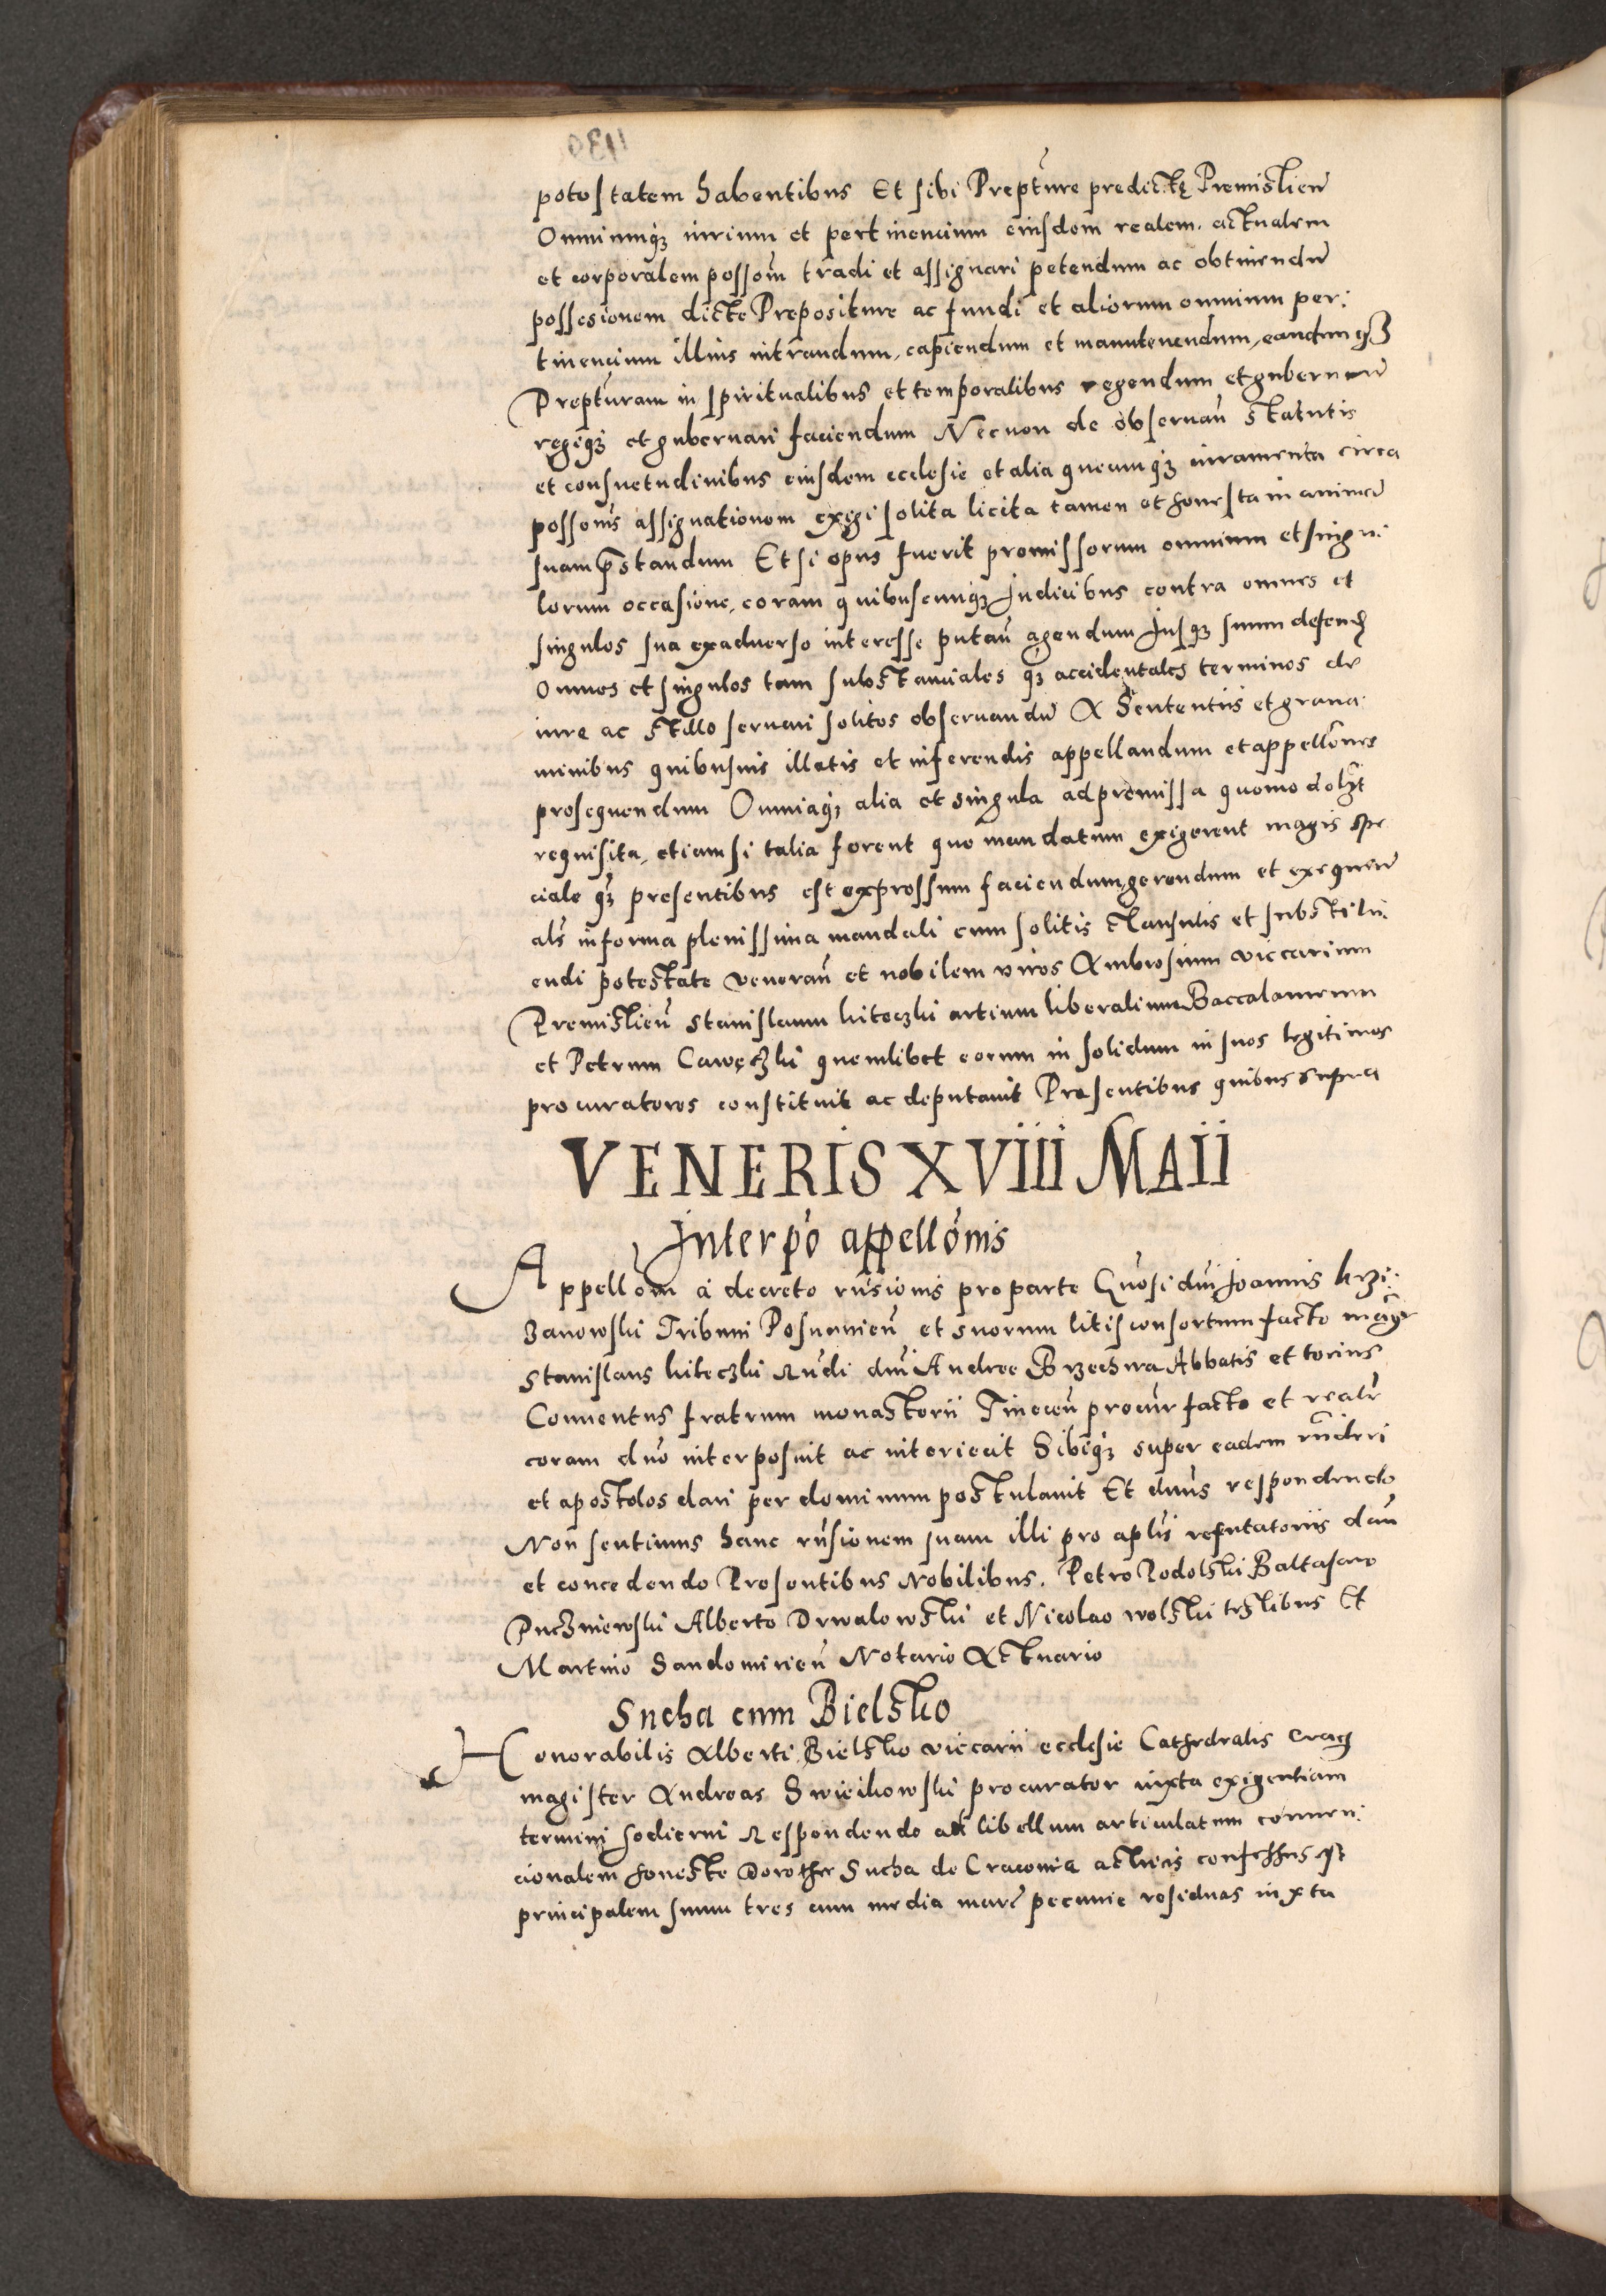 potestatem habentibus Et sibi Prepture predictę Premislien
Omniumq iurium et pertinencium eiusdem realem. actualem
et corporalem possom tradi et assignari petendum ac obtinendu
possesionem dicte Prepositure ac fundi et aliorum omnium per:
tinencium illius intrandum, capiendum et manutenendum, eandemq
Prepturam in spiritualibus et temporalibus regendum et gubernan
regiq et gubernari faciendum Necnon de observan statutis
et consuetudinibus eiusdem ecclesie et alia quecumq iuramenta circa
possonis assignationem exigi solita licita tamen et honesta in animam
suam prestandum Et si opus fuerit premissorum omnium et singu:
lorum occasione, coram quibuscunq Judicibus contra omnes et
singulos sua exadverso interesse putan agendum Jusq suum defend
Omnes et singulos tam substanciales q accidentales terminos de
iure ac stillo servari solitos observandu A Sententiis et grava:
minibus quibusvis illatis et inferendis appellandum et appellones
prosequendum Omniaq alia et singula ad premissa quomodolzt
requisita, etiamsi talia forent que mandatum exigerent magis spe
ciale q presentibus est expressum faciendum, gerendum et exequen
als in forma plenissima mandati cum solitis clausulis et substitu:
endi potestate veneran et nobilem viros Ambrosium viccarium
Premislien Stanislaum kiteczki artium liberalium Baccalaureum
et Petrum Cawęczki quemlibet eorum in solidum in suos legitimos
procuratores constituit ac deputavit Presentibus quibus supra
VENERIS XVIII MAII
Interpo appellonis
Appellom a decreto rusionis pro parte Gnosi dni Joannis krzi:
zanowski Tribuni Posnanien et suorum litis consortum facto magr
Stanislaus kiteczki Rndi dni Andree Brzechwa Abbatis et tocius
Conventus fratrum monasterii Tinecen procur facto et realr
coram dno interposuit ac interiecit Sibiq super eadem rnderi
et apostolos dari per dominum postulavit Et dnus respondendo
Non sentimus hanc rusionem suam illi pro aplis refutatoriis dan
et concedendo Presentibus Nobilibus. Petro Podolski Baltasaro
Puczniewski Alberto Drwalowski et Nicolao wolski tstibus Et
Martino Sandomirien Notario Actuario
Sucha cum Bielsko
Honorabilis Alberti Bielsko viccarii ecclesie Cathedralis Crac
magister Andreas Swieikowski procurator iuxta exigentiam
termini hodierni Respondendo ad libellum articulatum conven:
cionalem honeste Dorothee Sucha de Cracovia actricis confessus est
principalem suum tres cum media marc pecunie residuas iuxta